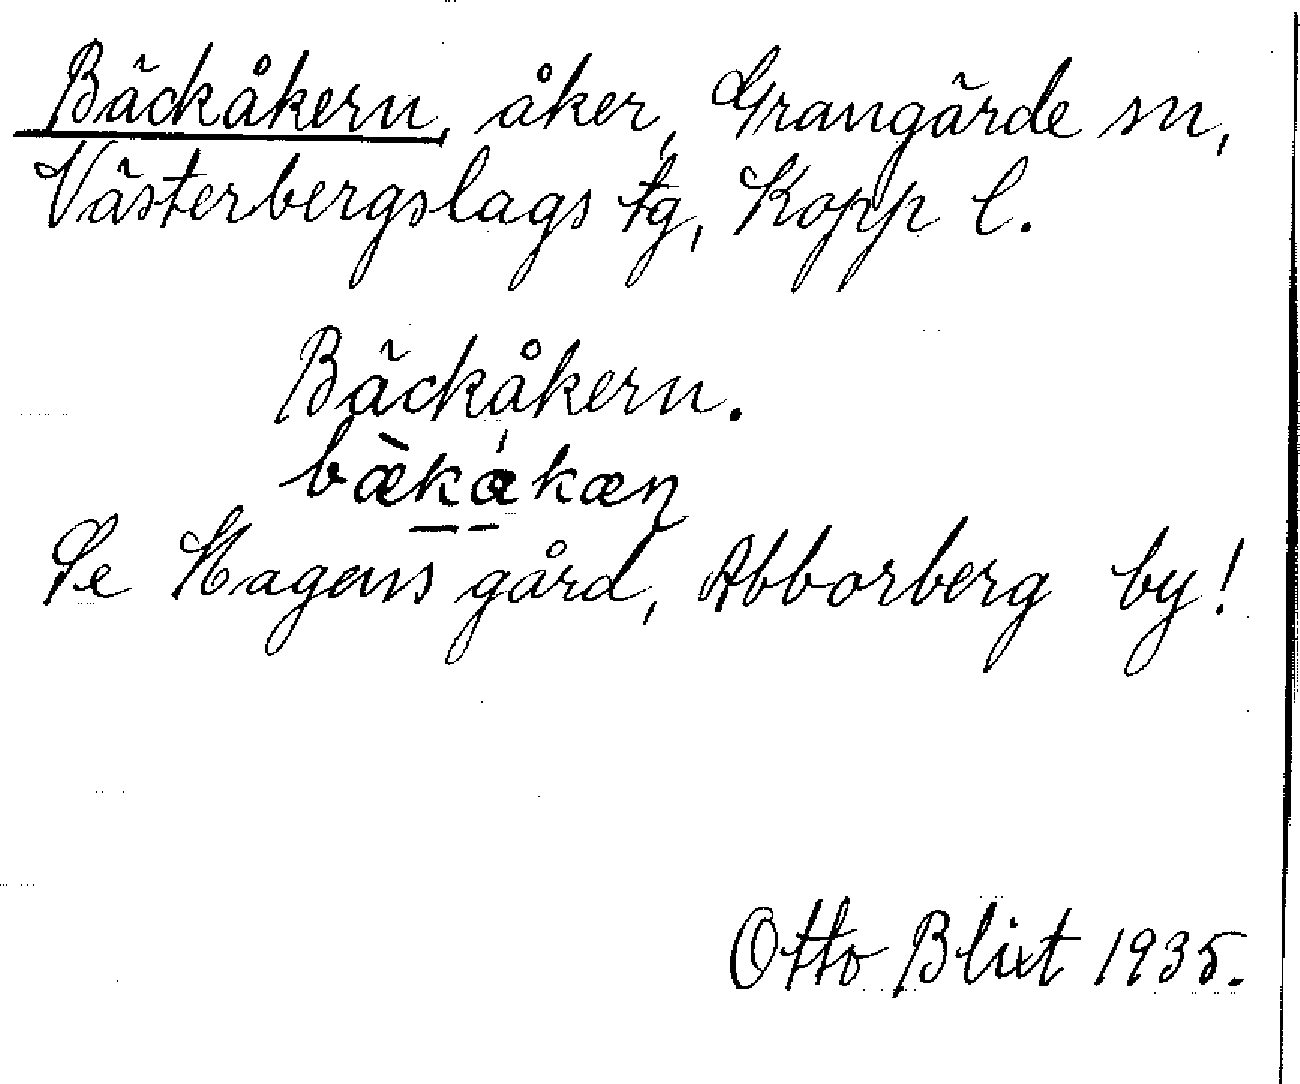 Bäckåkern, åker, Grangärde sn,
Västerbergslags tg, Kopp l.
Bäckåkern.
bæ̀kåkæn̥
Se Hagens gård, Abborberg by!
Otto Blixt 1935.